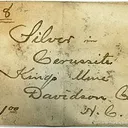 8
Silver in
Cerussite
Kings Mine
Davidson Co
N.C.
1.00